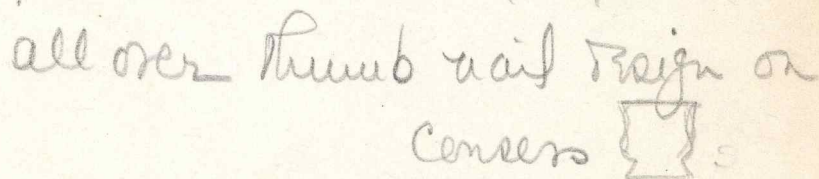 all over thumb nail design on
censers